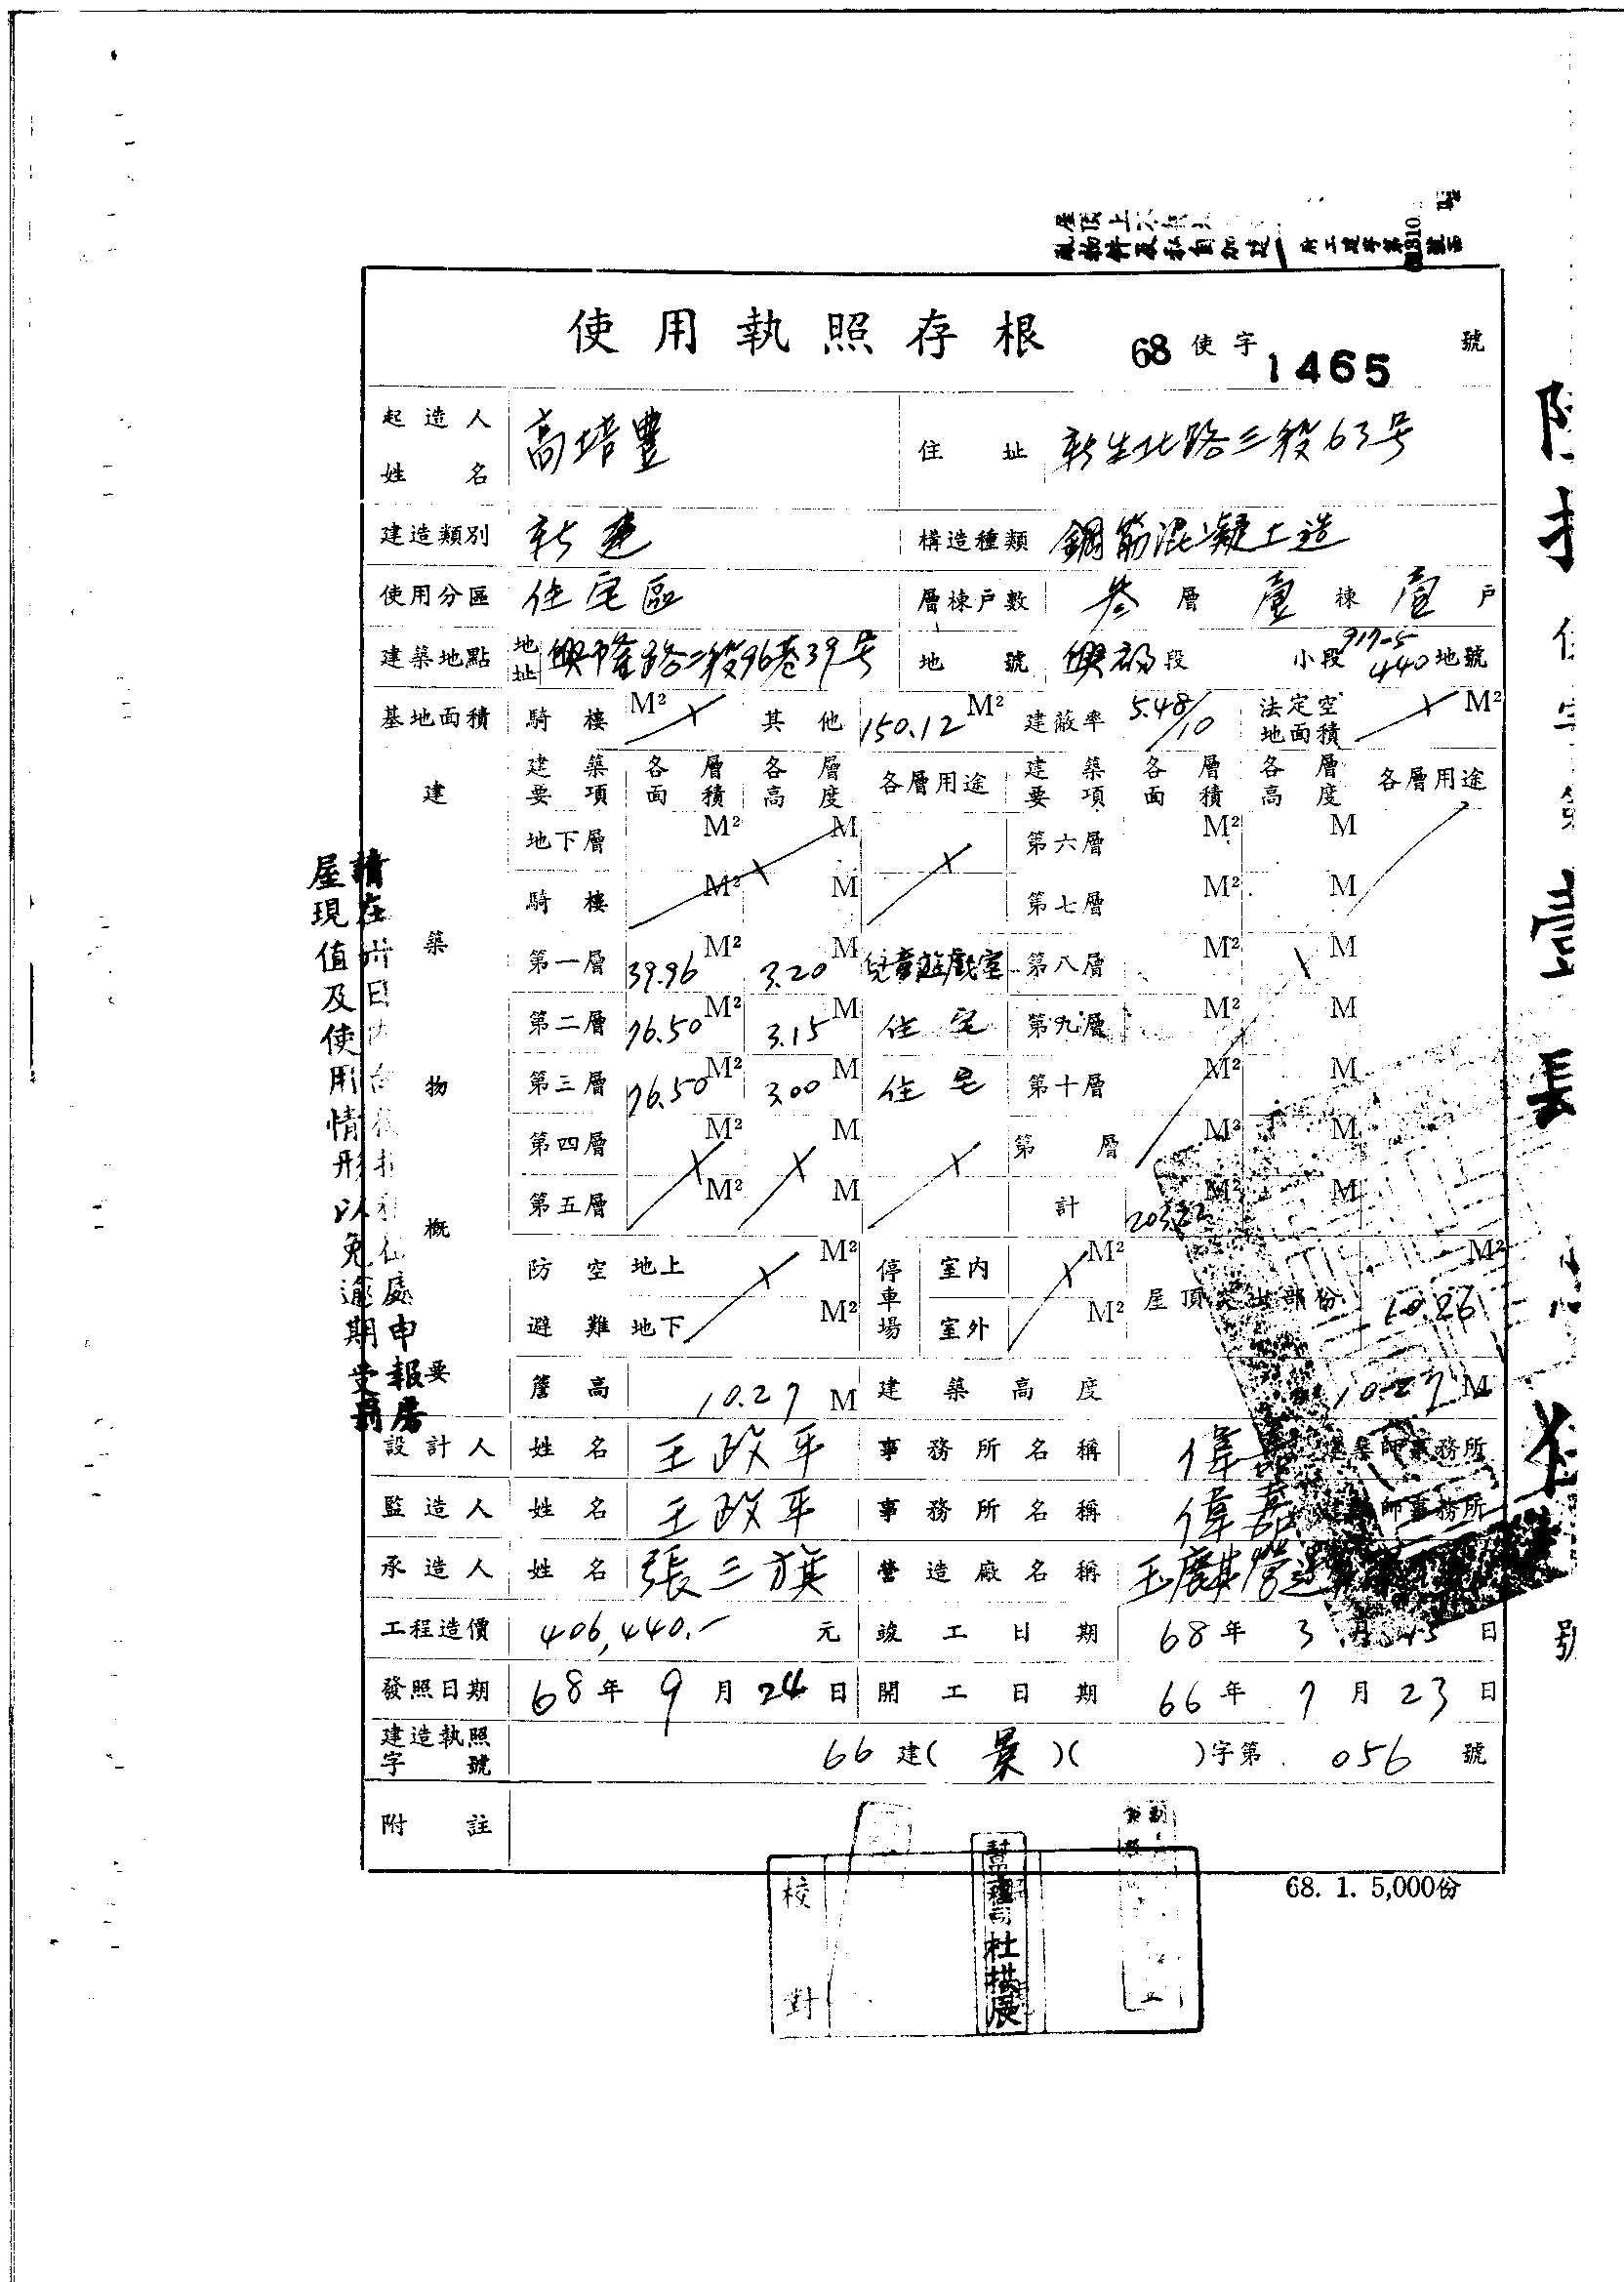 使用執照存根 68 使字 1465 號
起造人姓名 高培豐 住址 新生北路三段63号
建造類別 新建 構造種類 鋼筋混凝土造
使用分區 住宅區 層棟戶數 叁層壹棟壹戶
建築地點 地址 興隆路二段96巷39号 地號 興福段 小段 917-5 440 地號
基地面積 騎樓 M² 其他 150.12 M² 建蔽率 5.48/10 法定空地面積 M²
建築物概要
建築要項 各層面積 各層高度 各層用途 建築要項 各層面積 各層高度 各層用途
地下層 M² M 第六層 M² M
騎樓 M² M 第七層 M² M
第一層 39.96 M² 3.20 M 兒童遊戲室 第八層 M² M
第二層 76.50 M² 3.15 M 住宅 第九層 M² M
第三層 76.50 M² 3.00 M 住宅 第十層 M² M
第四層 M² M 第 層 M² M
第五層 M² M 計 M² M
防空避難 地上 M² 地下 M² 停車場 室內 M² 室外 M² 屋頂突出部份 10.26 M²
簷高 10.27 M 建築高度 10.27 M
設計人 姓名 王政平 事務所名稱 偉嘉建築師事務所
監造人 姓名 王政平 事務所名稱 偉嘉建築師事務所
承造人 姓名 張三旗 營造廠名稱 玉麒營造
工程造價 406,440.- 元 竣工日期 68年3月 日
發照日期 68年9月24日 開工日期 66年7月23日
建造執照字號 66 建(景)( )字第 056 號
附註
68. 1. 5,000份
校對
請在卅日內
處申報房
屋現值及使用情形以免逾期受罰